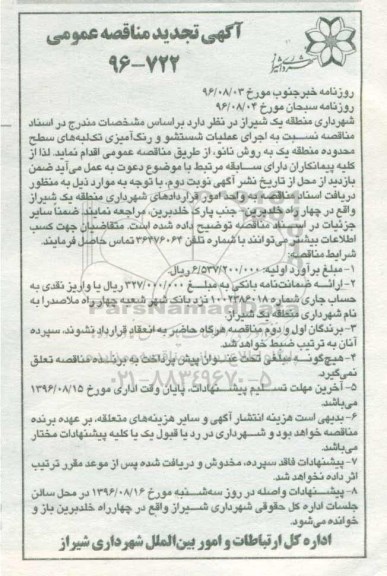 آگهی تجدید مناقصه عمومی
۹۶-۷۲۲
روزنامه خبرجنوب مورخ ۹۶/۰۸/۰۳
روزنامه سبحان مورخ ۹۶/۰۸/۰۴
شهرداری منطقه یک شیراز در نظر دارد براساس مشخصات مندرج در اسناد
مناقصه نسبت به اجرای عملیات شستشو و رنگ‌آمیزی تک‌لبه‌های سطح
محدوده منطقه یک به روش نانو، از طریق مناقصه عمومی اقدام نماید. لذا از
کلیه پیمانکاران دارای سابقه مرتبط با موضوع دعوت به عمل می‌آید ضمن
بازدید از محل از تاریخ نشر آگهی نوبت دوم، با توجه به موارد ذیل به منظور
دریافت اسناد مناقصه به واحد امور قراردادهای شهرداری منطقه یک شیراز
واقع در چهار راه خلدبرین- جنب پارک خلدبرین، مراجعه نمایند. ضمنا سایر
جزئیات در اسناد مناقصه توضیح داده شده است. متقاضیان جهت کسب
اطلاعات بیشتر می‌توانند با شماره تلفن ۳۶۴۷۶۰۶۳ تماس حاصل فرمایند.
شرایط مناقصه:
۱- مبلغ برآورد اولیه: ۶/۵۳۷/۲۰۰/۰۰۰ ریال.
۲- ارائه ضمانت‌نامه بانکی به مبلغ ۳۲۷/۰۰۰/۰۰۰ ریال یا واریز نقدی به
حساب جاری شماره ۱۰۰۲۳۸۶۰۱۸ نزد بانک شهر شعبه چهار راه ملاصدرا به
نام شهرداری منطقه یک شیراز.
۳- برندگان اول و دوم مناقصه هرگاه حاضر به انعقاد قرارداد نشوند، سپرده
آنان به ترتیب ضبط خواهد شد.
۴- هیچ‌گونه مبلغی تحت عنوان پیش پرداخت به برنده مناقصه تعلق
نمی‌گیرد.
۵- آخرین مهلت تسلیم پیشنهادات، پایان وقت اداری مورخ ۱۳۹۶/۰۸/۱۵
می‌باشد.
۶- بدیهی است هزینه انتشار آگهی و سایر هزینه‌های متعلقه، بر عهده برنده
مناقصه خواهد بود و شهرداری در رد یا قبول یک یا کلیه پیشنهادات مختار
می‌باشد.
۷- پیشنهادات فاقد سپرده، مخدوش و دریافت شده پس از موعد مقرر ترتیب
اثر داده نخواهد شد.
۸- پیشنهادات واصله در روز سه‌شنبه مورخ ۱۳۹۶/۰۸/۱۶ در محل سالن
جلسات اداره کل حقوقی شهرداری شیراز واقع در چهارراه خلدبرین باز و
خوانده می‌شود.
اداره کل ارتباطات و امور بین‌الملل شهرداری شیراز
ParsNamadData
۰۲۱-۸۸۳۴۹۶۷۰-۵